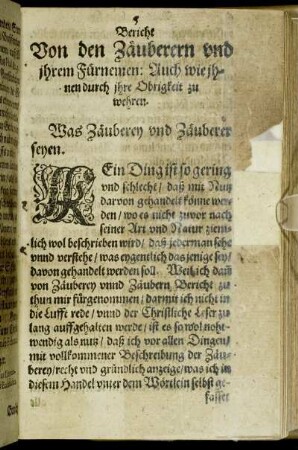 5
Bericht
Von den Zäuberern vnd
jhrem Fürnemen: Auch wie jh-
nen durch jhre Obrigkeit zu
wehren.
Was Zäuberey vnd Zäuberer
seyen.
KEin Ding ist so gering
vnd schlecht / daß mit Nutz
darvon gehandelt könne wer-
den / wo es nicht zuvor nach
seiner Art vnd Natur ziem-
lich wol beschrieben wird / daß jederman sehe
vnnd verstehe / was eygentlich das jenige sey /
davon gehandelt werden soll. Weil ich dann
von Zäuberey vnnd Zäubern Bericht zu
thun mir fürgenommen / darmit ich nicht in
die Lufft rede / vnnd der Christliche Leser zu
lang auffgehalten werde / ist es so wol noht-
wendig als nutz / daß ich vor allen Dingen /
mit vollkommener Beschreibung der Zäu-
berey / recht vnd gründlich anzeige / was ich in
diesem Handel vnter dem Wörtlein selbst ge-
fasset